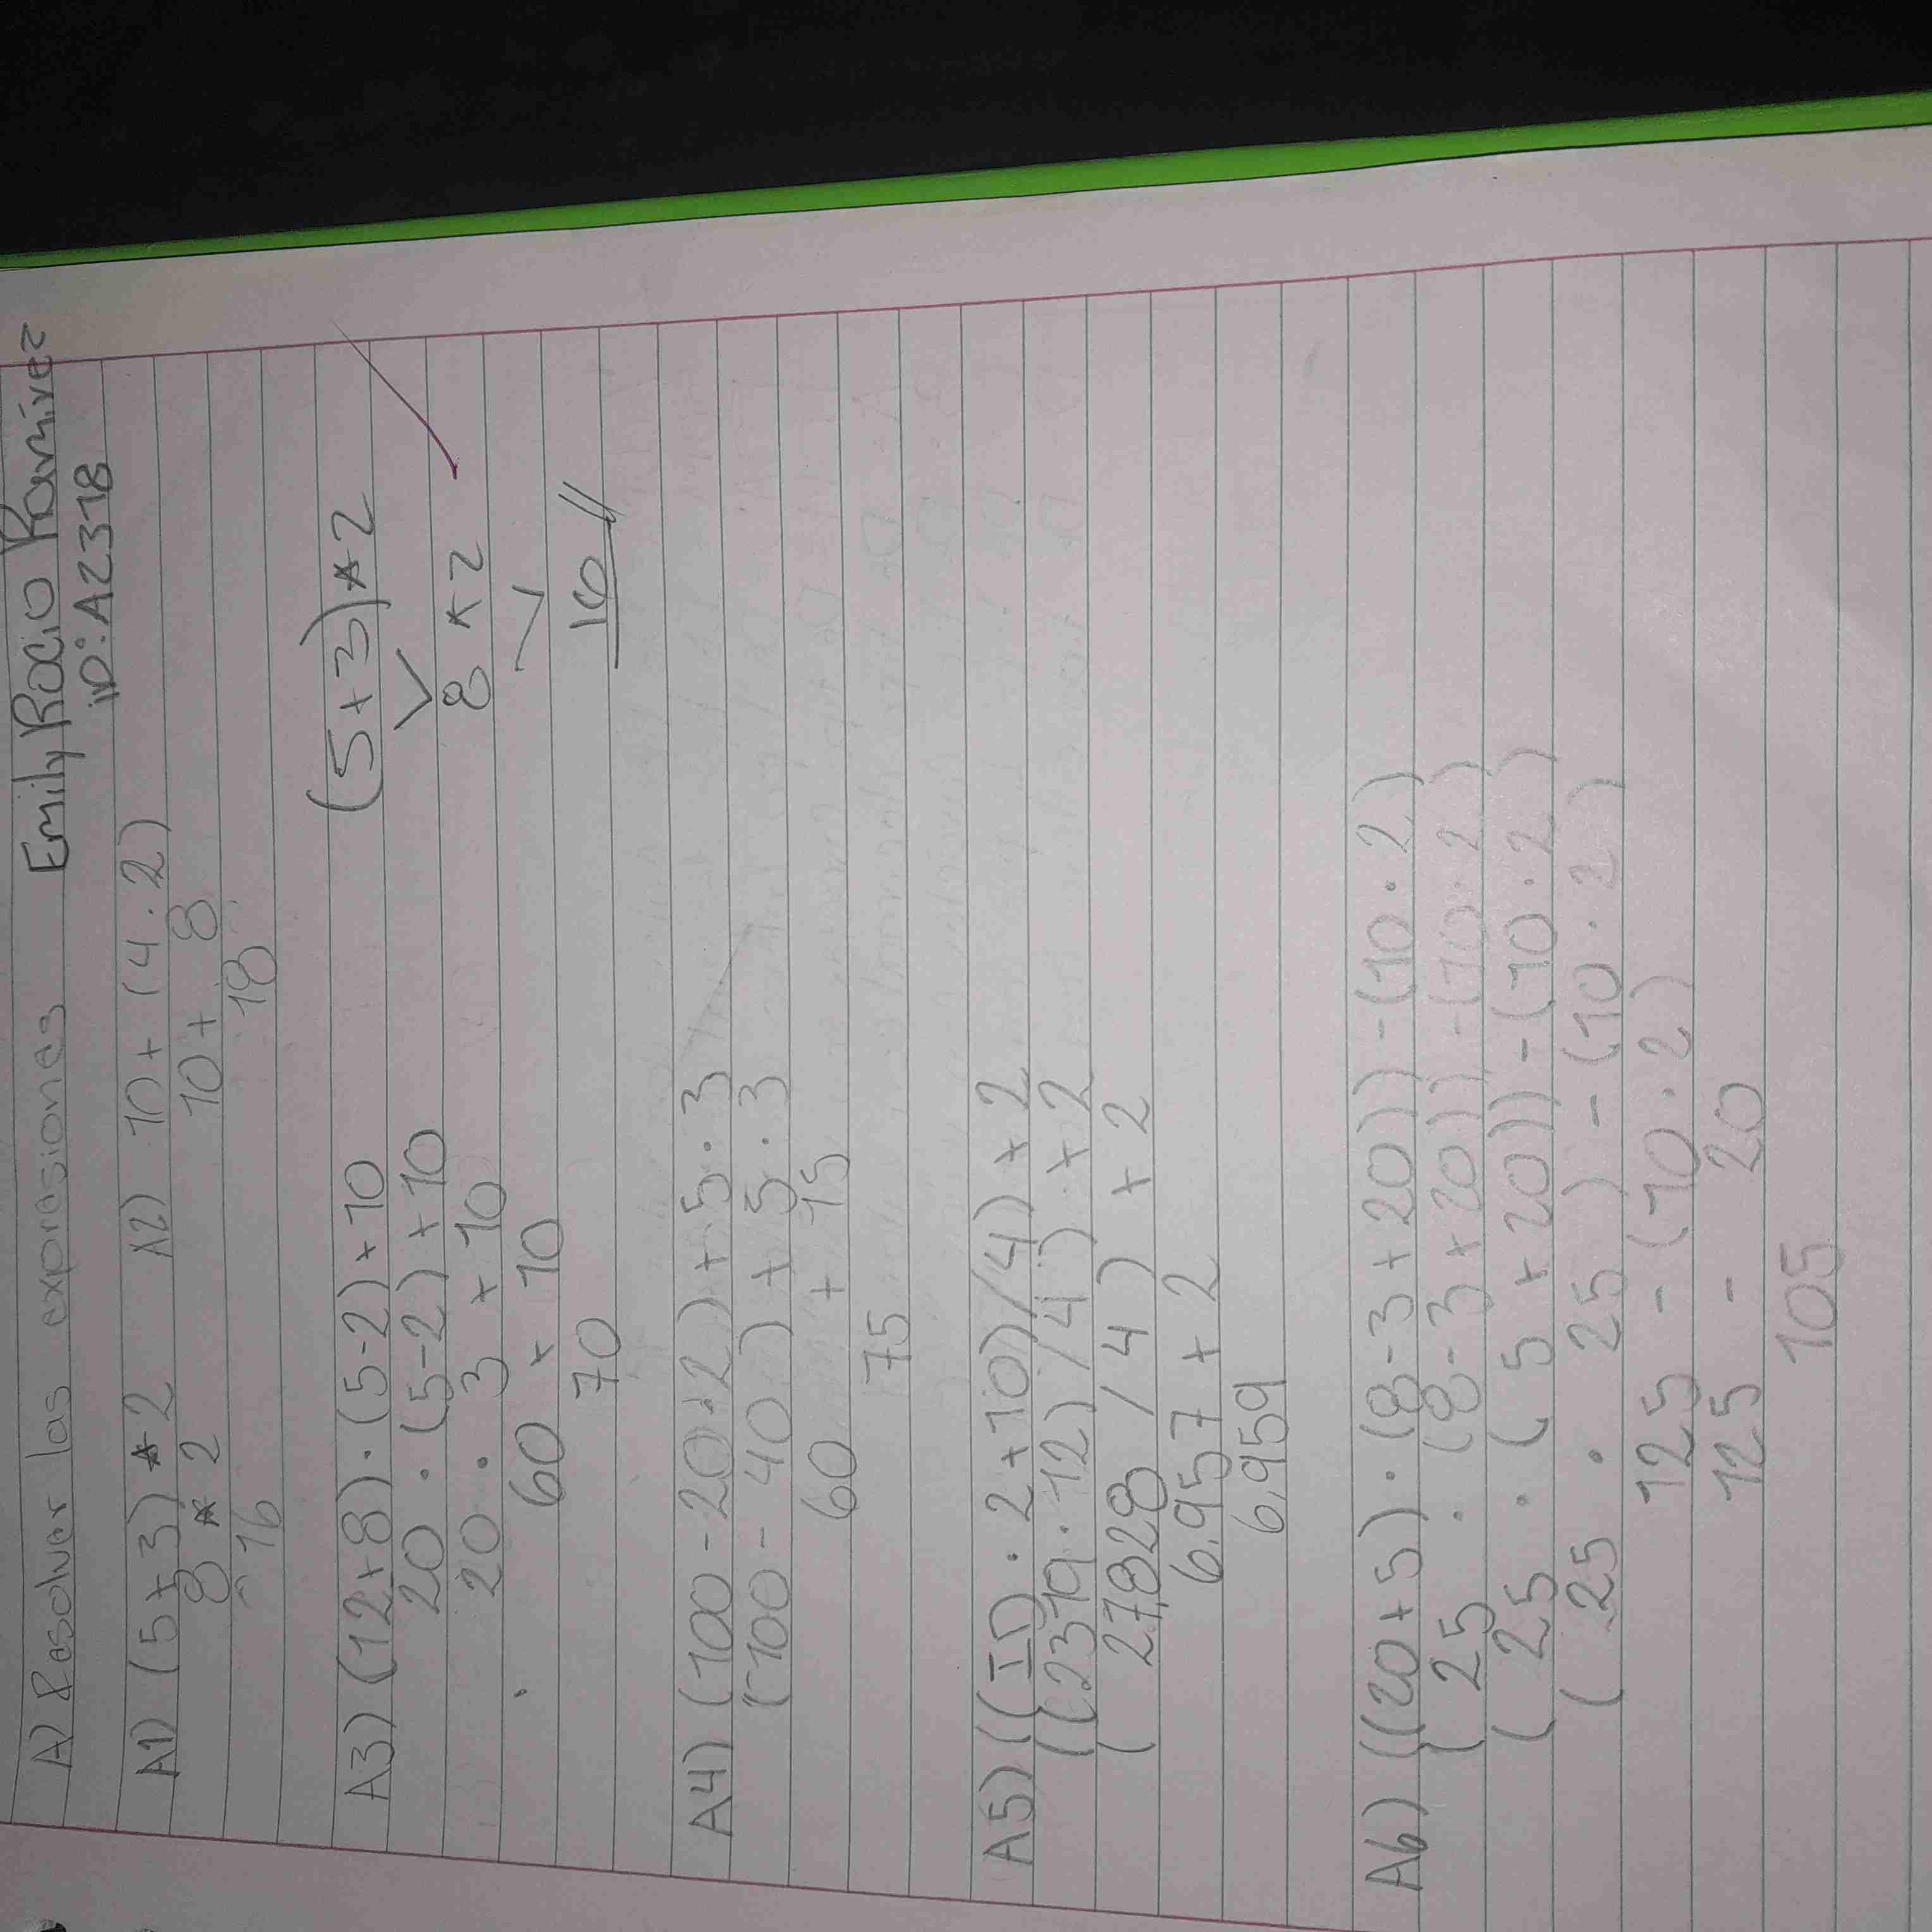 A) Resolver las expresiones Emily Rocio Ramírez
iD: A2318
A1) (5+3)*2 A2) 10+(4·2)
8*2 10+8
16 18
A3) (12+8)·(5-2)+10 (5+3)*2
20·(5-2)+10
20·3+10 8*2
60+10
70 16
A4) (100-20·2)+5·3
(100-40)+5·3
60+15
75
A5) ((ID·2+10)/4)+2
((2319·12)/4)+2
(27,828/4)+2
6.957+2
6.959
A6) ((20+5)·(8-3+20))-(10·2)
(25·(8-3+20))-(10·2)
(25·(5+20))-(10·2)
(25·25)-(10·2)
125-(10·2)
125-20
105